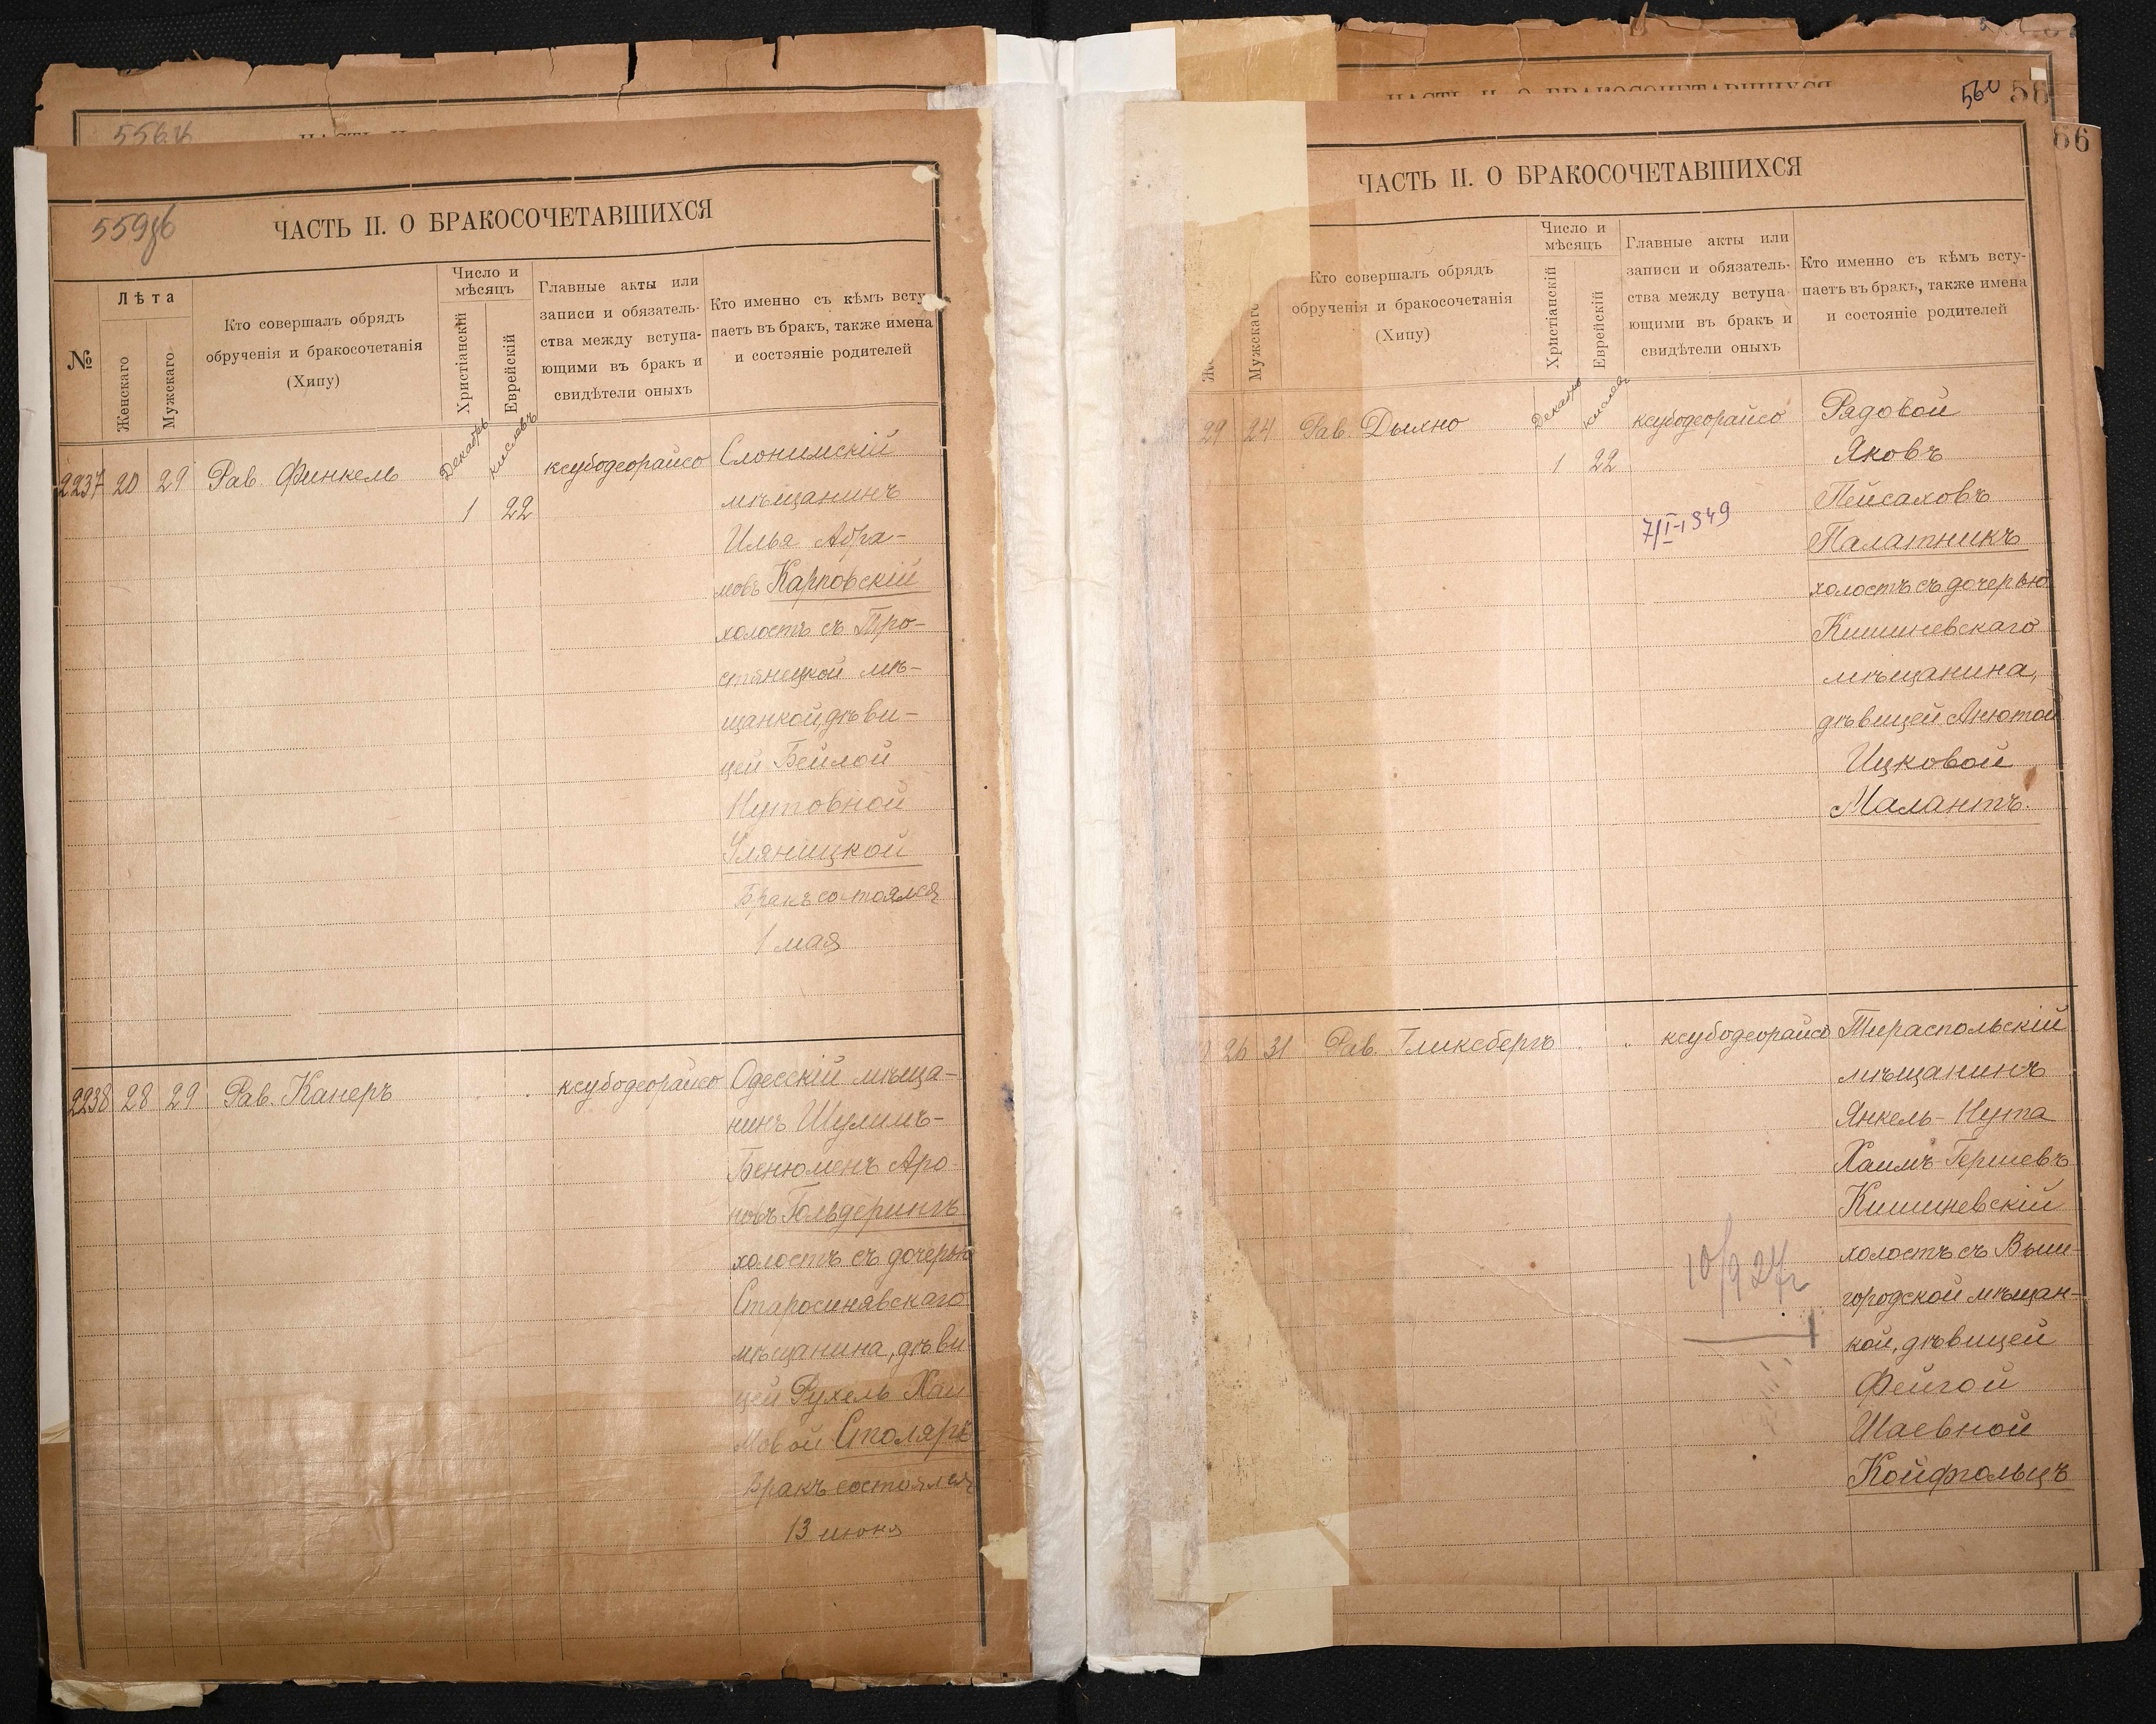 ЧАСТЬ II. О БРАКОСОЧЕТАВШИХСЯ
№
Лѣта
Женскаго
Мужскаго
Кто совершалъ обрядъ
обрученія и бракосочетанія
(Хипу)
Число и
мѣсяцъ
Христіанскій
Еврейскій
Главные акты или
записи и обязатель-
ства между вступа-
ющими въ бракъ и
свидѣтели оныхъ
Кто именно съ кѣмъ всту-
паетъ въ бракъ, также имена
и состояніе родителей
2237 20 29 Рав. Финкель
Декабрь
кислевъ
1 22
ксубодеорайсо
Слонимскій
мѣщанинъ
Илья Абра-
мовъ Карповскій
холостъ съ Тро-
стянецкой мѣ-
щанкой, дѣви-
цей Бейлой
Нутовной
Уляницкой
Бракъ состоялся
1 мая
2238 28 29 Рав. Канеръ
ксубодеорайсо
Одесскій мѣща-
нинъ Шулимъ-
Бенюменъ Аро-
новъ Гольдерингъ
холостъ съ дочерью
Старосинявскаго
мѣщанина, дѣви
цей Рухель Хаи
мовой Столяръ
Бракъ состоялся
13 июня
ЧАСТЬ II. О БРАКОСОЧЕТАВШИХСЯ
560
58
66
ЧАСТЬ II. О БРАКОСОЧЕТАВШИХСЯ
Мужскаго
Кто совершалъ обрядъ
обрученія и бракосочетанія
(Хипу)
Число и
мѣсяцъ
Христіанскій
Еврейскій
Главные акты или
записи и обязатель-
ства между вступа-
ющими въ бракъ и
свидѣтели оныхъ
Кто именно съ кѣмъ всту-
паетъ въ бракъ, также имена
и состояніе родителей
29 24 Рав. Дыхно
Декабрь
кислевъ
1 22
ксубодеорайсо
7/I-1949
Рядовой
Яковъ
Пейсаховъ
Палатникъ
холостъ съ дочерью
Кишиневскаго
мѣщанина,
дѣвицей Анютой
Ицковой
Малантъ.
26 31 Рав. Гликсбергъ
ксубодеорайсо
Тираспольскій
мѣщанинъ
Янкель-Нута
Хаимъ-Гершевъ
Кишиневскій
холостъ съ Выш-
городской мѣщан-
кой, дѣвицей
Фейгой
Шаевной
Койфгольцъ